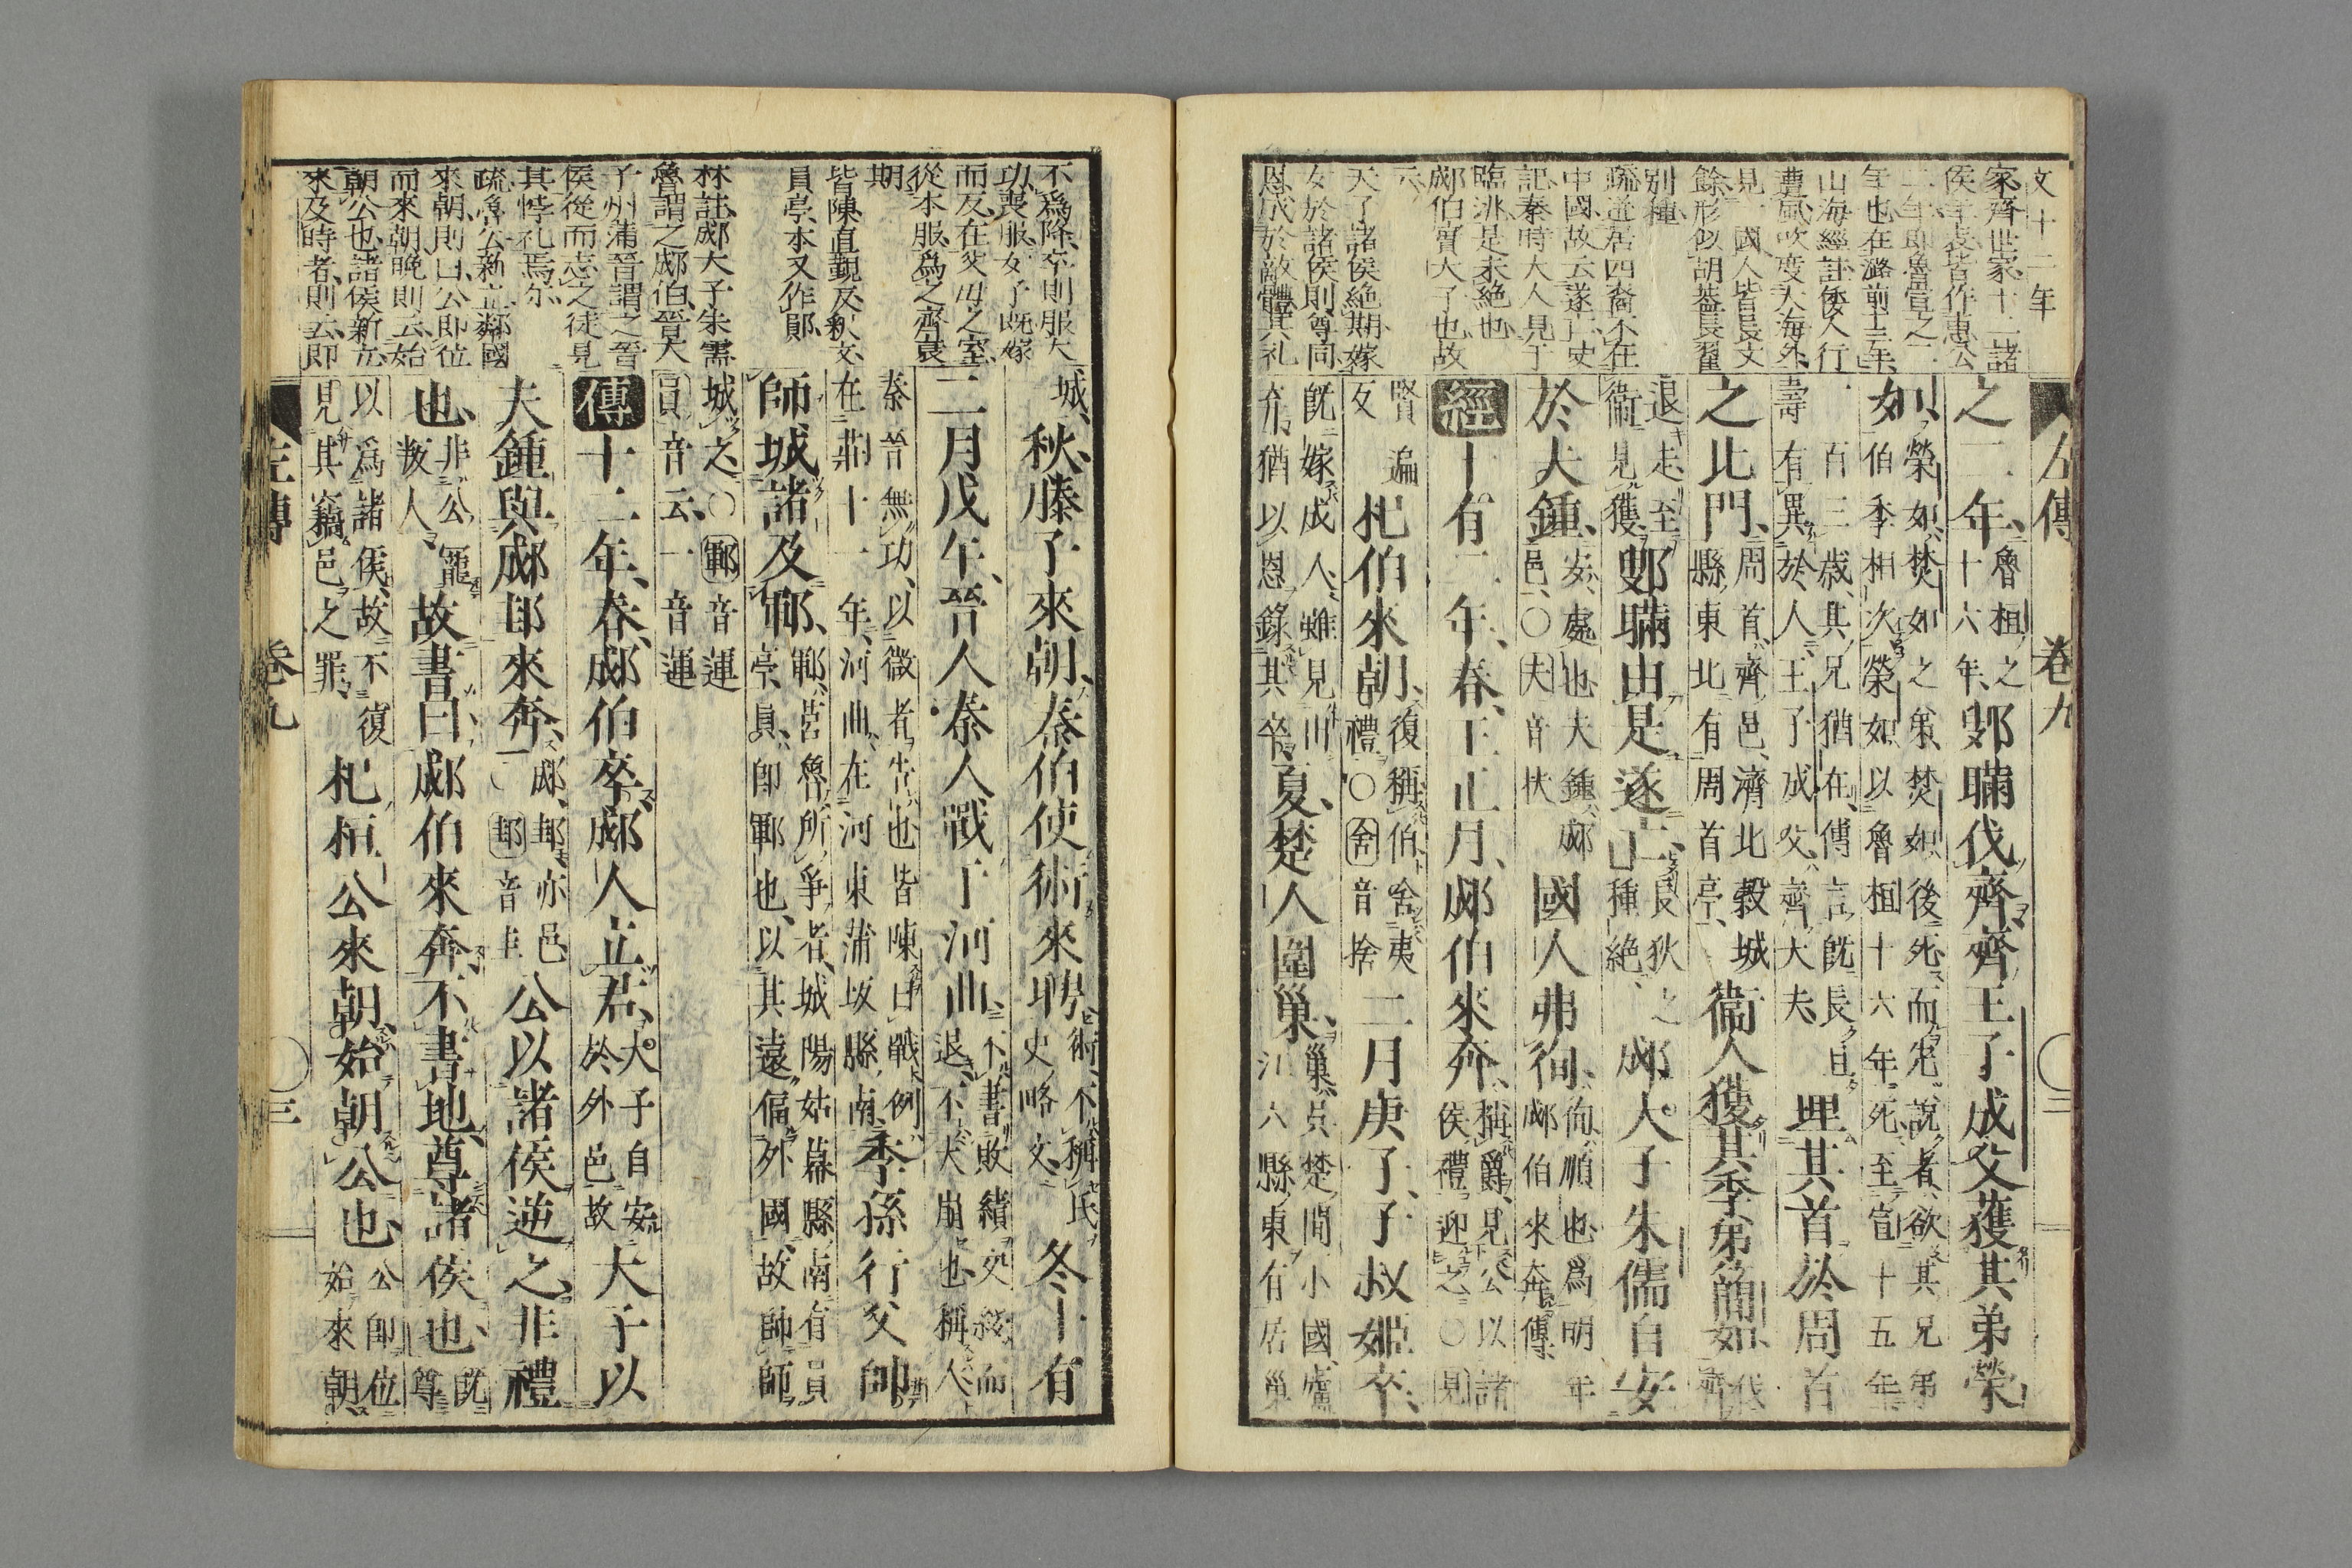 文十二年
家齊世家十二諸
侯年表皆作惠公
二年即魯宣之二
年也在潞前十三年
山海經註倭人行
遭風吹度大海外
見一國人皆長丈
餘形似胡葢長翟
別種
疏逆居四裔不在
中國故云遂亡史
記秦時大人見于
臨洮是未絶也
郕伯實大子也故
云
天子諸侯絶期嫁
女於諸侯則尊同
恩成於敵體其礼
左傳 卷九 二
之二年、魯桓之十六年、鄋瞞伐齊、齊王子成父獲其弟榮
如、榮如焚如之弟、焚如後死而先說者、欲其兄弟
伯季相次、榮如以魯桓十六年死、至宣十五年
一百三歳、其兄猶在、傳言既長且
壽有異於人、王子成父、齊大夫、埋其首於周首
之北門、周首、齊邑、濟北穀城縣東北有周首亭、衞人獲其季弟簡如、伐齊
退走至衞見獲、鄋瞞由是遂亡、長狄之種絶、郕大子朱儒自安
於夫鍾、安、處也夫鍾、郕邑、○夫音扶國人弗徇、徇、順也爲明年郕伯來奔傳、
經十有二年、春、王正月、郕伯來奔、稱爵、見公以諸侯禮迎之○見
賢遍反杞伯來朝、復稱伯、舍夷禮○舍音捨二月庚子、子叔姬卒、
既嫁成人、雖見出
弃猶以恩錄其卒、夏、楚人圍巢、巢、吳楚間小國、廬江六縣東有居巢
不爲降、卒則服大
功、喪服女子既嫁
而反在父母之室、
從本服爲之齊衰
期、
皆陳直覲反釈文、
員亭、本又作鄖、
林註、郕大子朱需
魯謂之郕伯、晉大
子州蒲晉謂之晉
侯從而志之徒見
其悖礼焉尔
疏、魯公新立鄰國
來朝、則曰公即位
而來朝、晚則云始
朝公也、諸侯新立
來及時者、則云即
城、秋、滕子來朝、秦伯使術來聘、術、不稱氏、史略文、冬、十有
二月戊午、晉人秦人戰于河曲、不書敗績、交綏而退、不大崩也、稱人、
秦晉無功、以微者告也皆陳曰戰、例在莊十一年、河曲、在河東蒲坂縣南、季孫行父帥
師、城諸及鄆、鄆、莒魯所爭者、城陽姑幕縣、南有員亭、員、即鄆也、以其遠偏外國、故帥師
城之、○鄆音運員音云、一音運
傳十二年、春、郕伯卒、郕人立君、大子自安於外邑故大子以
夫鍾與郕邽來奔、郕、邽、亦邑○邽音圭公以諸侯逆之、非禮
也、非公寵叛人、故書曰、郕伯來奔、不書地、尊諸侯也、既尊
以爲諸侯、故不復見其竊邑之罪、杞桓公來朝、始朝公也、公即位始來朝、
左傳 卷九 三